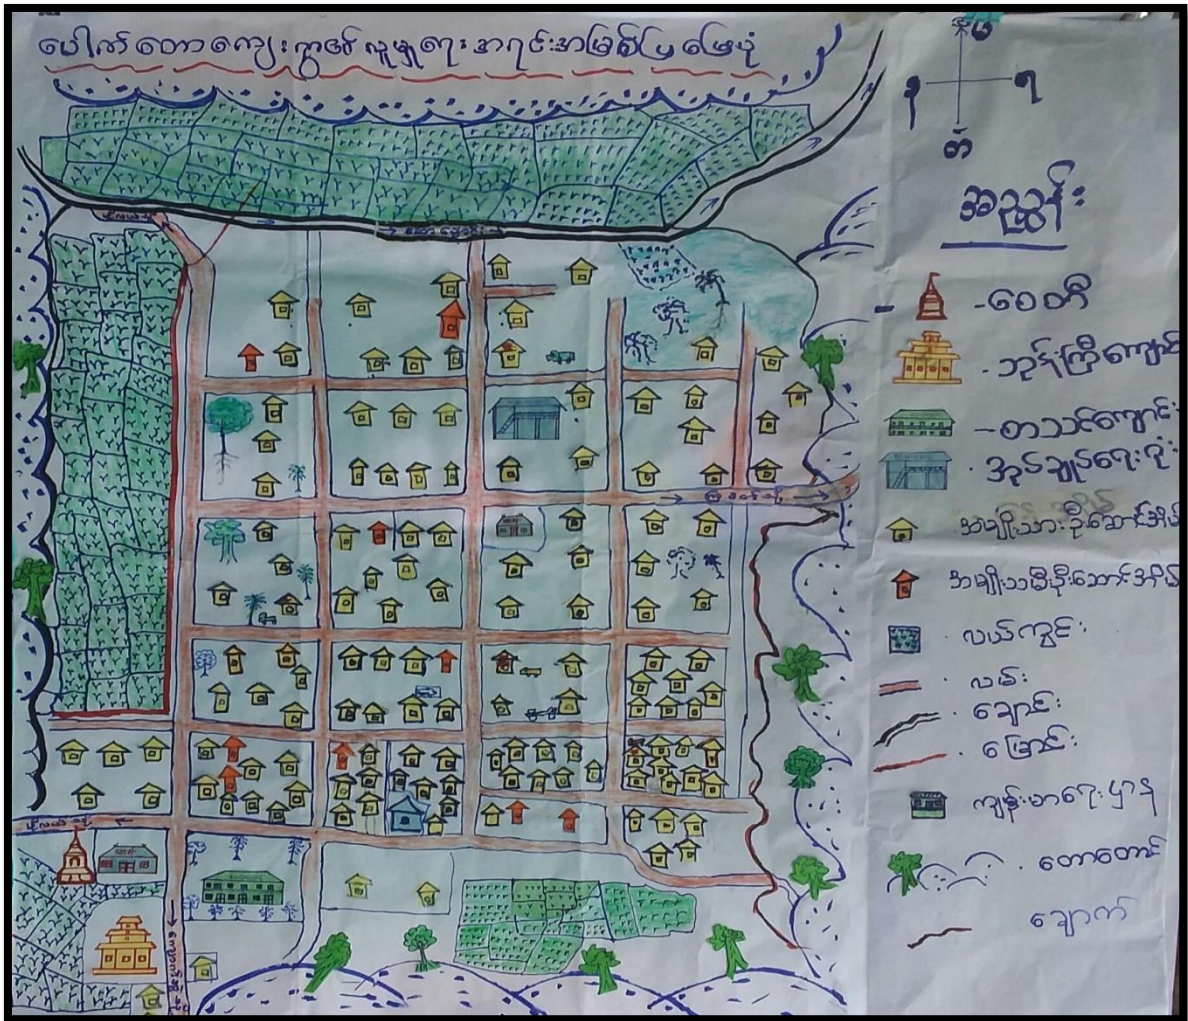 ပေါက်တောကျေးရွာ၏ လူမှုရေး အရင်းအမြစ်ပြ မြေပုံ
မ
န
ရ
တ
အညွှန်း
- စေတီ
- ဘုန်းကြီးကျောင်း
- စာသင်ကျောင်း
- အုပ်ချုပ်ရေးရုံး
အမျိုးသားဦးဆောင်အိမ်
အမျိုးသမီးဦးဆောင်အိမ်
- လယ်ကွင်း
- လမ်း
- ချောင်း
- မြောင်း
ကျန်းမာရေးဌာန
- တောတောင်
ချောက်